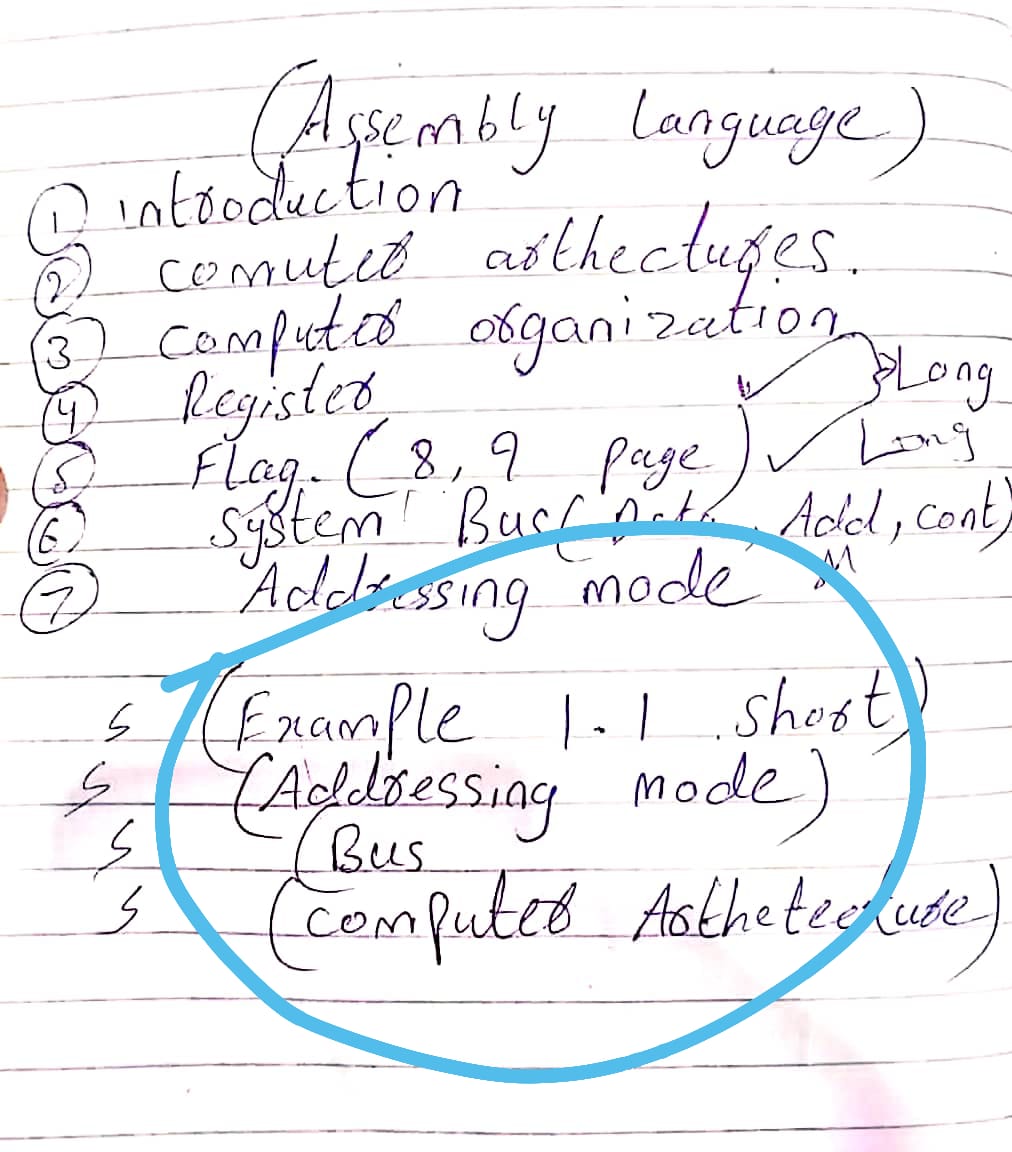 (Assembly language)
1 introduction
2 comuter arthectures.
3 computer organization
Long
4 Register
5 Flag. (8, 9 page) Long
6 System Bus (Data, Add, cont)
7 Addressing mode
S (Example 1.1 short)
S (Addressing mode)
S (Bus
S (computer Arthetecture)